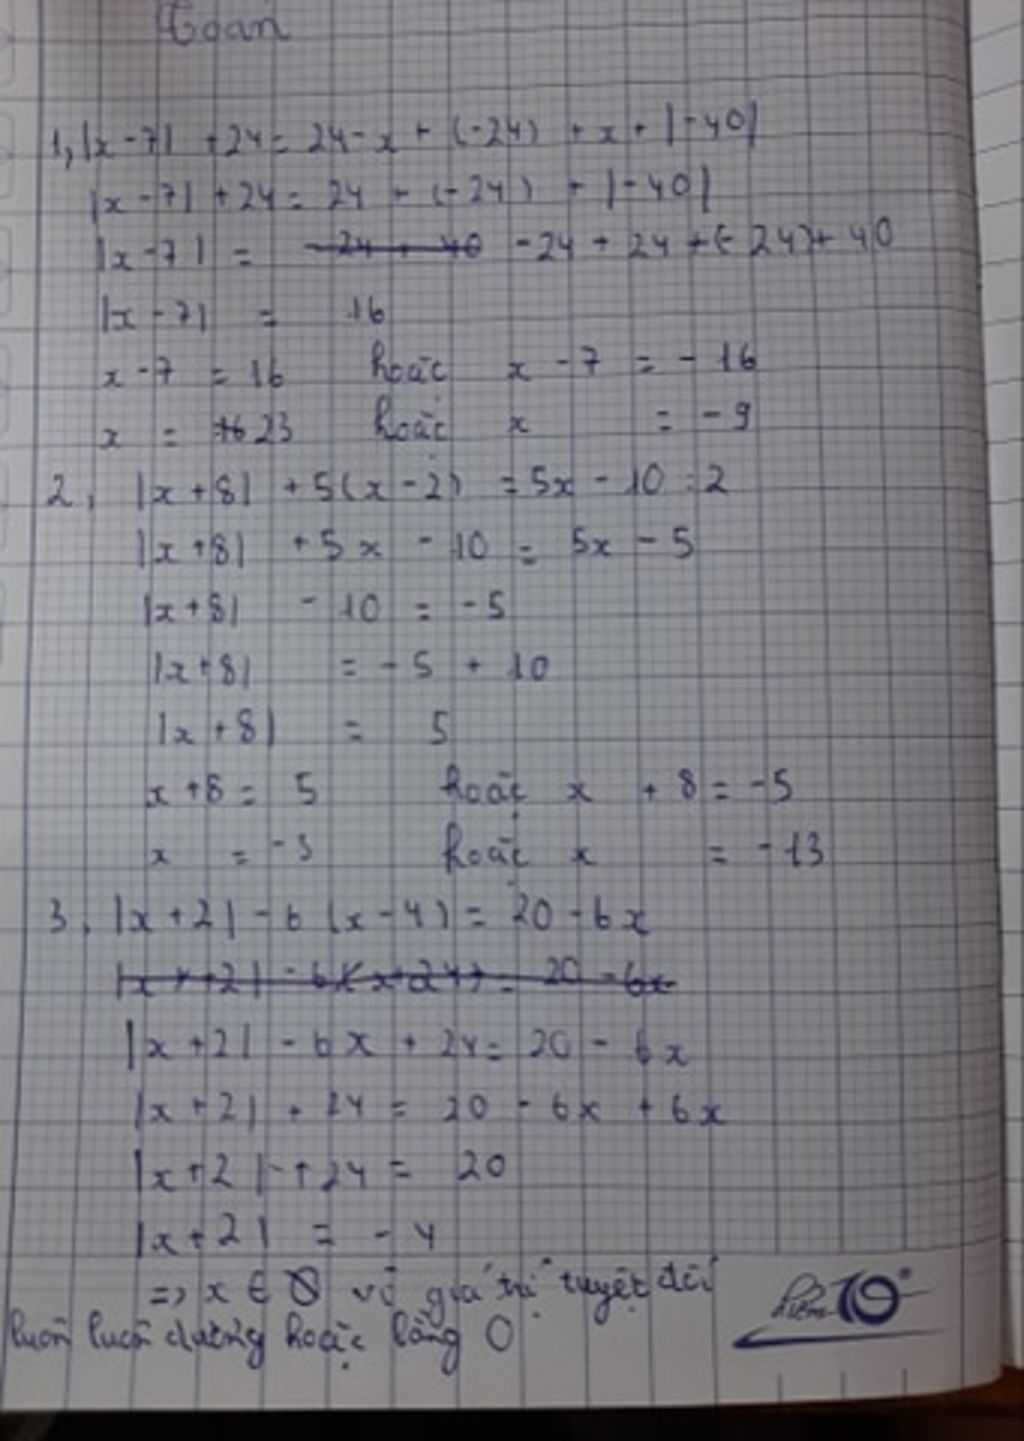 Toán
1, |x - 7| + 24 = 24 - x + (-24) + x + |-40|
|x - 7| + 24 = 24 + (-24) + |-40|
|x - 7| = -24 + 40 -24 + 24 + (-24) + 40
|x - 7| = 16
x - 7 = 16 hoặc x - 7 = - 16
x = 16 23 hoặc x = - 9
2, |x + 8| + 5(x - 2) = 5x - 10 : 2
|x + 8| + 5x - 10 = 5x - 5
|x + 8| - 10 = - 5
|x + 8| = - 5 + 10
|x + 8| = 5
x + 8 = 5 hoặc x + 8 = - 5
x = - 3 hoặc x = - 13
3, |x + 2| - 6 (x - 4) = 20 - 6x
|x + 2| - 6x + 24 = 20 - 6x
|x + 2| + 24 = 20 - 6x + 6x
|x + 2| + 24 = 20
|x + 2| = - 4
=> x ∈ ∅ vì giá trị tuyệt đối
luôn luôn dương hoặc bằng 0
Điểm 10